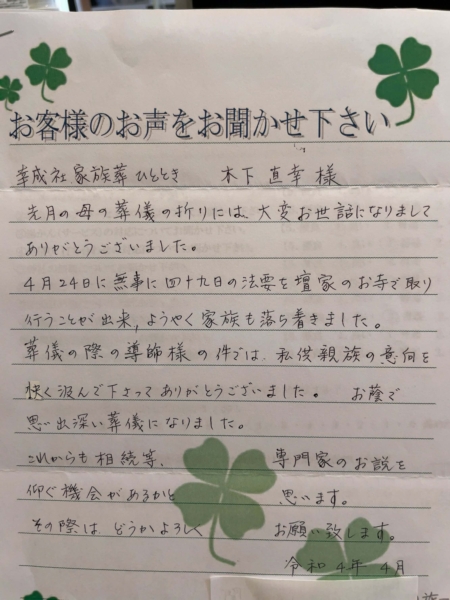 お客様のお声をお聞かせ下さい
幸成社家族葬ひととき 木下 直幸 様
先月の母の葬儀の折りには、大変お世話になりまして
ありがとうございました。
4月24日に無事に四十九日の法要を壇家のお寺で取り
行うことが出来、ようやく家族も落ち着きました。
葬儀の際の導師様の件では、私供親族の意向を
快く汲んで下さってありがとうございました。 お蔭で
思い出深い葬儀になりました。
これからも相続等、 専門家のお説を
仰ぐ機会があるかと 思います。
その際は、どうかよろしく お願い致します。
令和4年4月